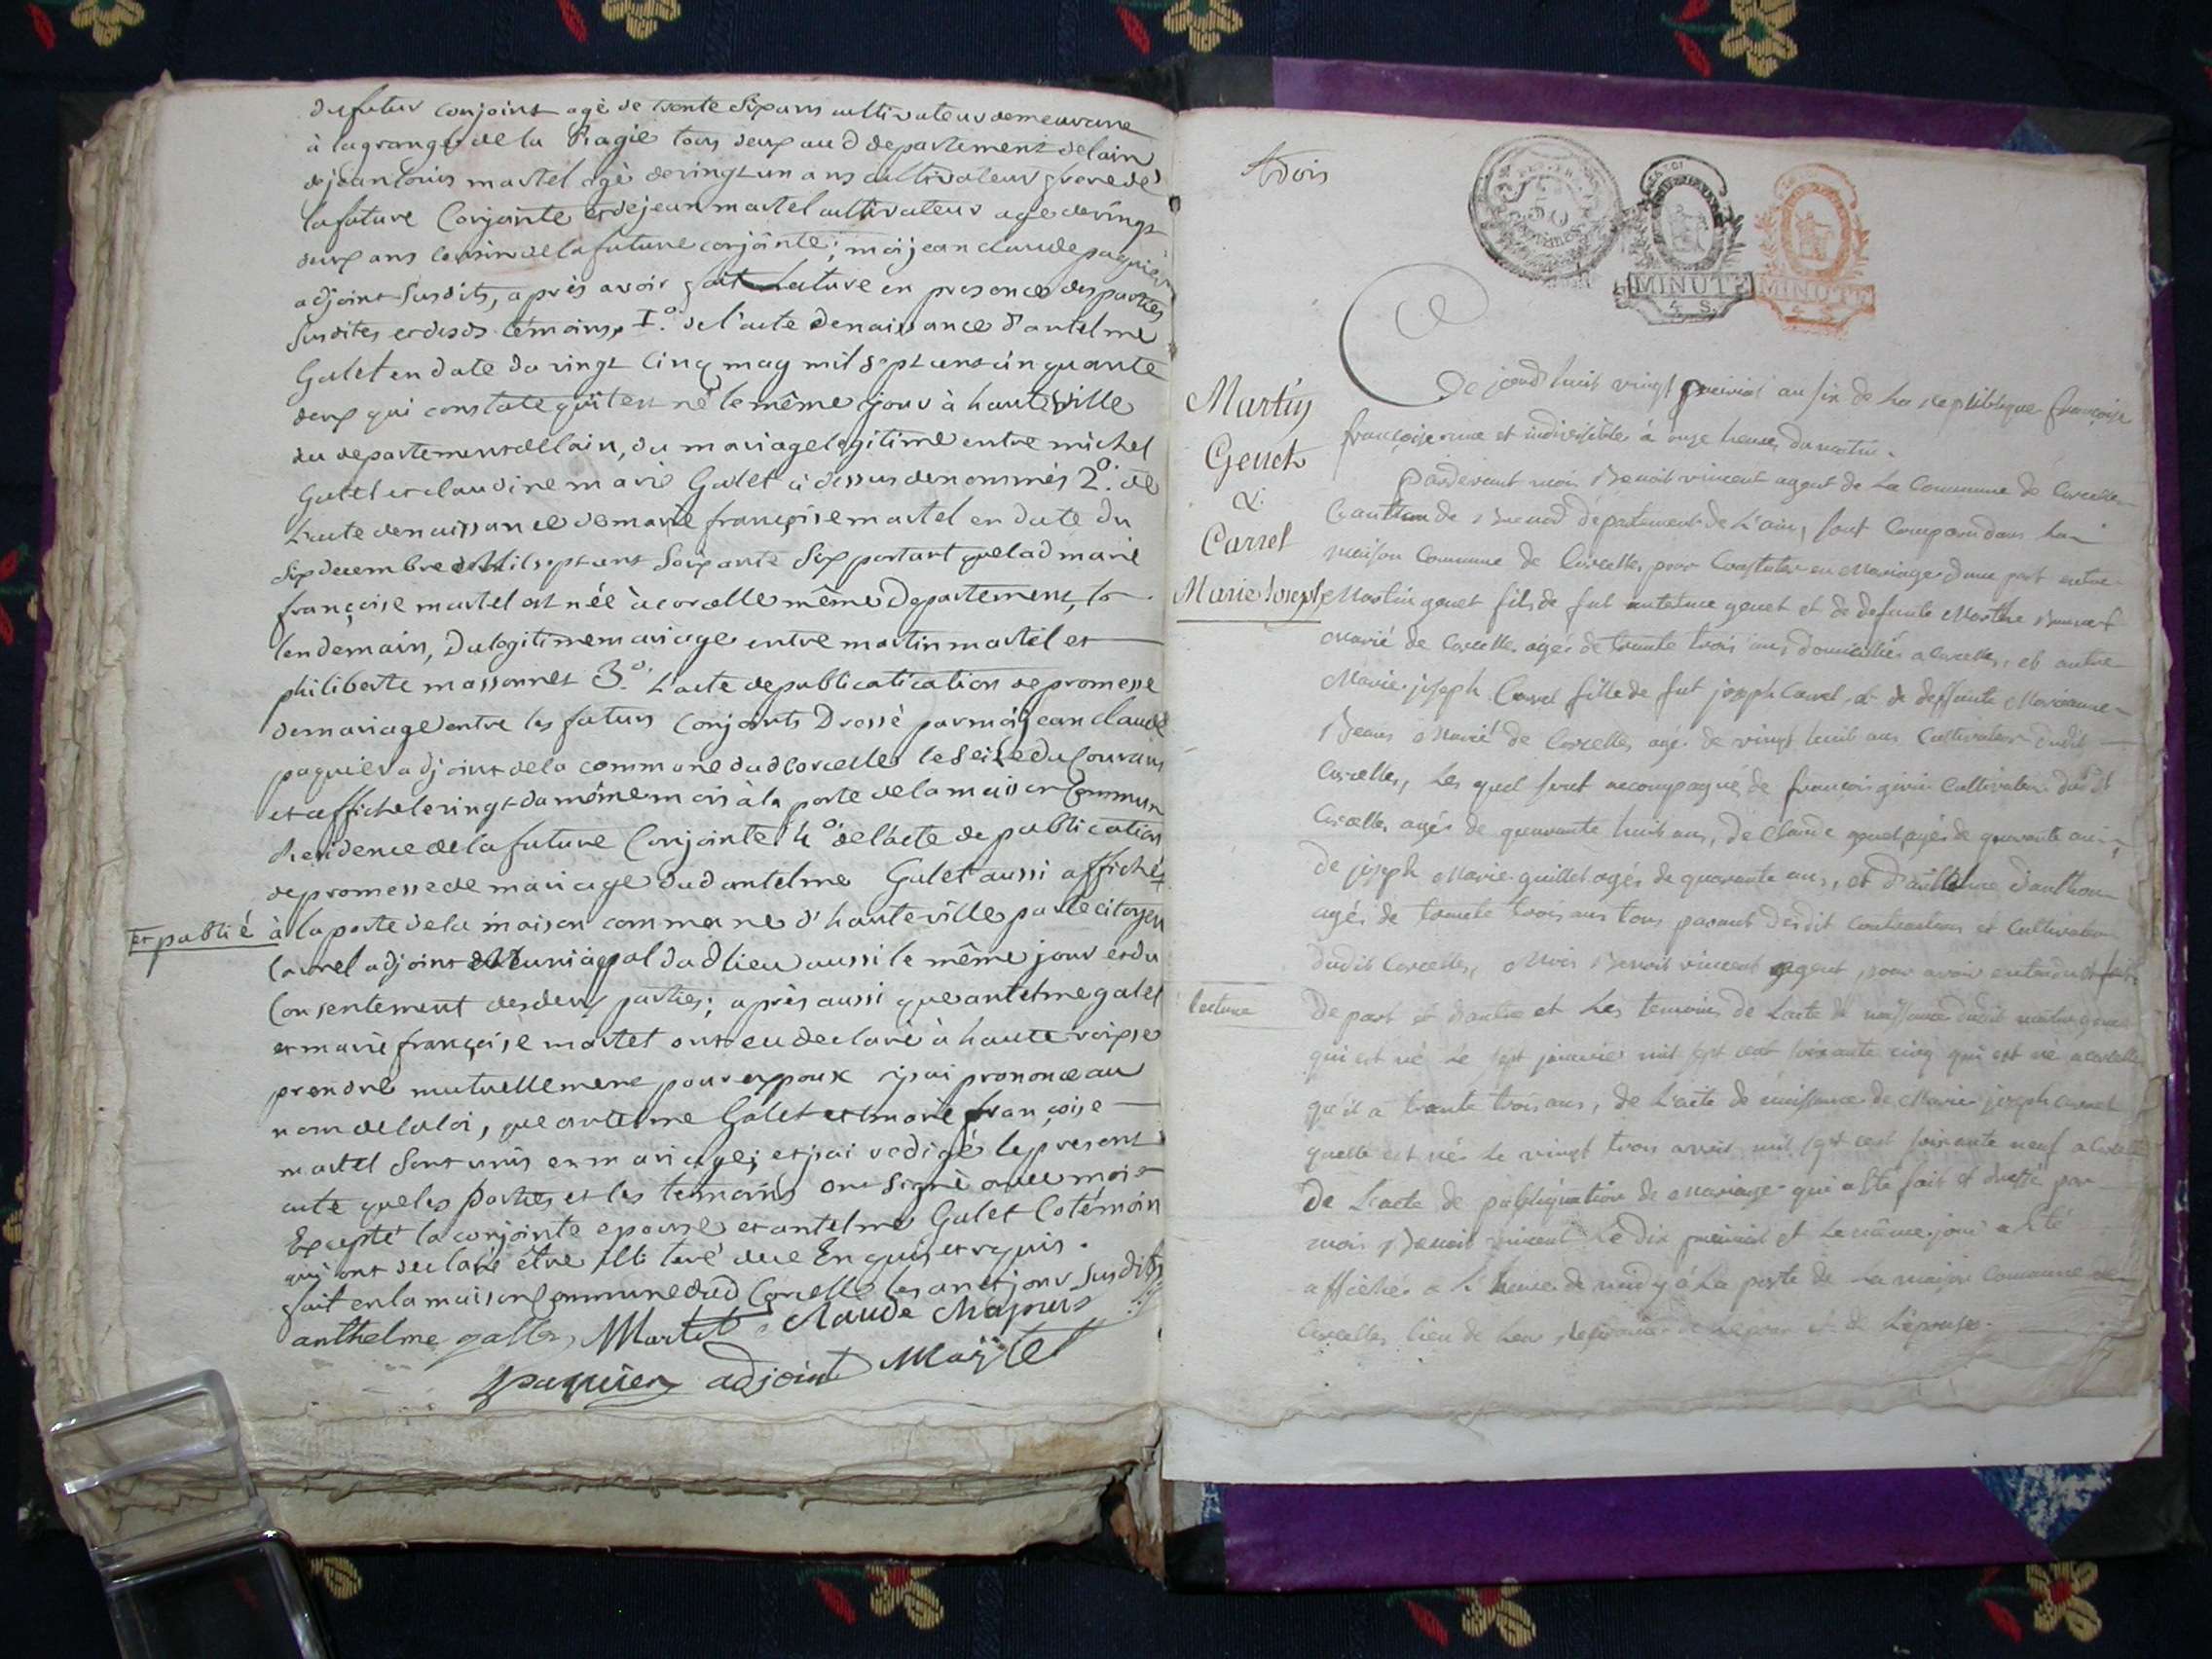 du futur conjoint agé de trente six ans cultivateur demeurant
à la grange de la Ragie tous deux aud departement de lain
de jean louis martel agé de vingt un ans cultivateur frere de
la future Conjointe et de jean martel cultivateur agé de vingt
deux ans cousin de la future conjointe; moi jean claude paquier
adjoint susdits, après avoir fait Lecture en presence des parties
susdites et desds témoins, 1.º de l'acte de naissance d'antelme
Galet en date du vingt cinq may mil sept cent cinquante
deux qui constate qu'il est né le même jour à hauteville
du departement de lain, du mariage legitime entre michel
Galet et claudine marie Galet ci dessus denommés 2.º de
L'acte de naissance de marie françoise martel en date du
six decembre Mil sept cent soixante six portant que lad marie
françoise martel est née à corcelle même Departement, le
lendemain, du legitime mariage entre martin martel et
philiberte massonnet 3.º L'acte de publicatication de promesse
de mariage entre les futurs Conjoints Dressé par moi jean claude
paquier adjoint de la commune dud Corcelles le seize du Courant
et affiché le vingt du même mois à la porte de la maison Commune
Residence de la future Conjointe 4º de l'acte de publication
de promesse de mariage dud antelme Galet aussi affiché
et publié à la porte de la maison commune d'hauteville par le citoyen
Carrel adjoint municipal dud lieu aussi le même jour et du
Consentement des deux parties; après aussi que antelme galet
et marie françoise martel ont eu declaré à haute voix se
prendre mutuellement pour epoux j'ai prononcé au
nom de la loi, que antelme Galet et marie françoise
martel sont unis en mariage; et j'ai redigé le present
acte que les parties et les temoins ont signé avec moi
Excepté la conjointe epouse et antelme Galet le témoin
qui ont declaré être illi teré de ce Enquis et requis.
fait en la maison Commune dud Corcelle les an et jour susdits
anthelme gallet Martel Claude Chapuis
paquier adjoint Martel
trois
50
CENTIMES
MINUTE
4 S.
MINUTE
Martin
Genet
&
Carrel
Marie Joseph
Ce jourd'huit vingt preirial an six de La republique françoise
françoise une et indivisible à onze heures du matin.
Pardevant moi Benoit vincent agent de La Commune de Corcelle
Canton de Brenod departement de L'ain, sont Comparu dans La
maison Commune de Corcelles pour Constater en Mariage d'une part entre
Martin genet fils de fut antelme genet et de defunte Marthe
Marié de Corcelles agés de trante trois ans, domiciliés a Corcelles, et autre
Marie joseph Carrel fille de fut joseph Carrel, et de deffunte Marianne
Beau Marié de Corcelles agé de vingt huit ans Cultivateur dudit
Corcelles, Les quel sont accompagné de françois Cultivateur dudit
Corcelles agés de quarante huit ans, De Claude genet agés de quarante ans,
De joseph Marie guillet agés de quarante ans, et d'antelme
agés de trante trois ans tous parant desdit contractans et Cultivateur
dudit Corcelles, Mois Benoit vincent agent pour avoir entendu et fait
lecture De part et d'autre et Les temoins de Lacte de naissance dudit martin genet
qui est né Le sept janvier mil sept cent soixante cinq qui est né a corcelles
qu'il a trante trois ans, de L'acte de naissance de Marie joseph carrel
quelle est née Le vingt trois mil sept cent soixante neuf a Corcelle
De L'acte de publiquation de Mariage qui a Eté fait et dressé par
mois Benoit vincent Le dix preirial et Le même jour a Eté
affichés a L'heure de midy à La porte de La maison Commune de
Corcelles lieu de Leur de Lepoux et de L'epouse.